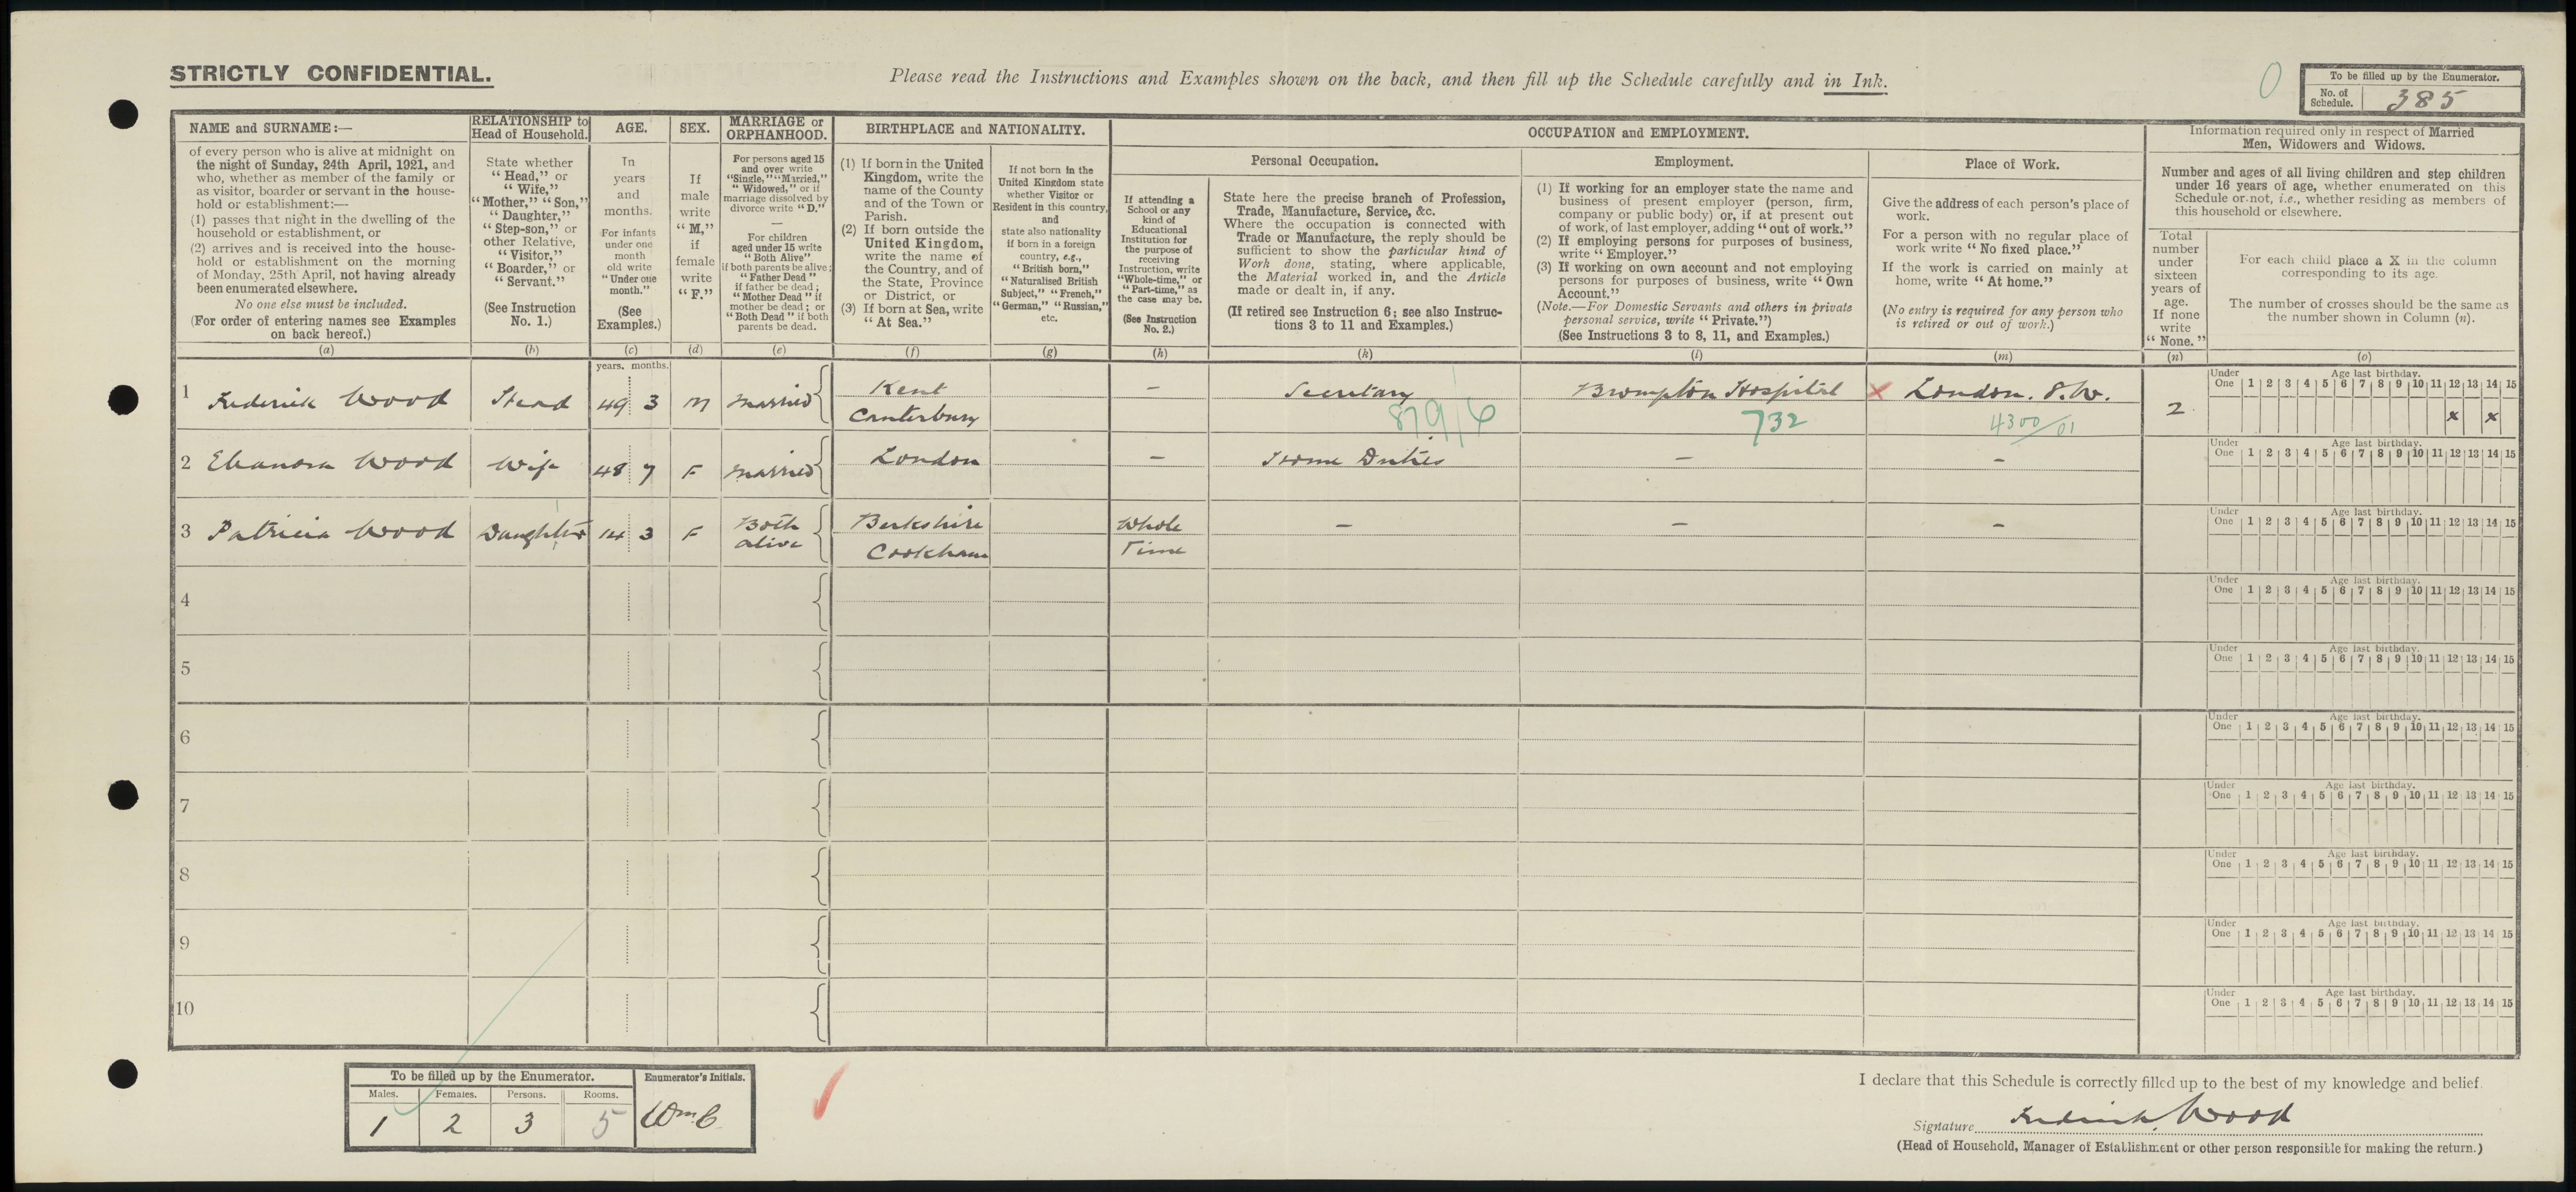 STRICTLY CONFIDENTIAL.
Please read the Instructions and Examples shown on the back, and then fill up the Schedule carefully and in Ink.
0
To be filled up by the Enumerator.
No. of Schedule. 385
NAME and SURNAME:—
of every person who is alive at midnight on
the night of Sunday, 24th April, 1921, and
who, whether as member of the family or
as visitor, boarder or servant in the house-
hold or establishment:—
(1) passes that night in the dwelling of the
household or establishment, or
(2) arrives and is received into the house-
hold or establishment on the morning
of Monday, 25th April, not having already
been enumerated elsewhere.
No one else must be included.
(For order of entering names see Examples
on back hereof.)
(a)
RELATIONSHIP to
Head of Household.
State whether
"Head," or
"Wife,"
"Mother," "Son,"
"Daughter,"
"Step-son," or
other Relative,
"Visitor,"
"Boarder," or
"Servant."
(See Instruction
No. 1.)
(b)
AGE.
In
years
and
months.
For infants
under one
month
old write
"Under one
month."
(See
Examples.)
(c)
SEX.
If
male
write
"M,"
if
female
write
"F."
(d)
MARRIAGE or
ORPHANHOOD.
For persons aged 15
and over write
"Single," "Married,"
"Widowed," or if
marriage dissolved by
divorce write "D."
—
For children
aged under 15 write
"Both Alive"
if both parents be alive;
"Father Dead"
if father be dead;
"Mother Dead" if
mother be dead; or
"Both Dead" if both
parents be dead.
(e)
BIRTHPLACE and NATIONALITY.
(1) If born in the United
Kingdom, write the
name of the County
and of the Town or
Parish.
(2) If born outside the
United Kingdom,
write the name of
the Country, and of
the State, Province
or District, or
(3) If born at Sea, write
"At Sea."
(f)
If not born in the
United Kingdom state
whether Visitor or
Resident in this country,
and
state also nationality
if born in a foreign
country, e.g.,
"British born,"
"Naturalised British
Subject," "French,"
"German," "Russian,"
etc.
(g)
OCCUPATION and EMPLOYMENT.
Personal Occupation.
If attending a
School or any
kind of
Educational
Institution for
the purpose of
receiving
Instruction, write
"Whole-time," or
"Part-time," as
the case may be.
(See Instruction
No. 2.)
(h)
State here the precise branch of Profession,
Trade, Manufacture, Service, &c.
Where the occupation is connected with
Trade or Manufacture, the reply should be
sufficient to show the particular kind of
Work done, stating, where applicable,
the Material worked in, and the Article
made or dealt in, if any.
(If retired see Instruction 6; see also Instruc-
tions 3 to 11 and Examples.)
(k)
Employment.
(1) If working for an employer state the name and
business of present employer (person, firm,
company or public body) or, if at present out
of work, of last employer, adding "out of work."
(2) If employing persons for purposes of business,
write "Employer."
(3) If working on own account and not employing
persons for purposes of business, write "Own
Account."
(Note.—For Domestic Servants and others in private
personal service, write "Private.")
(See Instructions 3 to 8, 11, and Examples.)
(l)
Place of Work.
Give the address of each person's place of
work.
For a person with no regular place of
work write "No fixed place."
If the work is carried on mainly at
home, write "At home."
(No entry is required for any person who
is retired or out of work.)
(m)
Information required only in respect of Married
Men, Widowers and Widows.
Number and ages of all living children and step children
under 16 years of age, whether enumerated on this
Schedule or not, i.e., whether residing as members of
this household or elsewhere.
Total
number
under
sixteen
years of
age.
If none
write
"None."
(n)
For each child place a X in the column
corresponding to its age.
The number of crosses should be the same as
the number shown in Column (n).
(o)
years. months.
1 Frederick Wood Head 49 3 M Married Kent — Secretary Brompton Hospital X London. S.W. 2
Canterbury
879/6 732 4300/01
Under One Age last birthday. 1 2 3 4 5 6 7 8 9 10 11 12 13 14 15
x x
2 Eleanora Wood Wife 48 7 F Married London — Home Duties — —
Under One Age last birthday. 1 2 3 4 5 6 7 8 9 10 11 12 13 14 15
3 Patricia Wood Daughter 14 3 F Both alive Berkshire Whole — — —
Cookham Time
Under One Age last birthday. 1 2 3 4 5 6 7 8 9 10 11 12 13 14 15
4
Under One Age last birthday. 1 2 3 4 5 6 7 8 9 10 11 12 13 14 15
5
Under One Age last birthday. 1 2 3 4 5 6 7 8 9 10 11 12 13 14 15
6
Under One Age last birthday. 1 2 3 4 5 6 7 8 9 10 11 12 13 14 15
7
Under One Age last birthday. 1 2 3 4 5 6 7 8 9 10 11 12 13 14 15
8
Under One Age last birthday. 1 2 3 4 5 6 7 8 9 10 11 12 13 14 15
9
Under One Age last birthday. 1 2 3 4 5 6 7 8 9 10 11 12 13 14 15
10
Under One Age last birthday. 1 2 3 4 5 6 7 8 9 10 11 12 13 14 15
To be filled up by the Enumerator. Enumerator's Initials.
Males. Females. Persons. Rooms.
1 2 3 5
I declare that this Schedule is correctly filled up to the best of my knowledge and belief.
Signature Frederick Wood
(Head of Household, Manager of Establishment or other person responsible for making the return.)